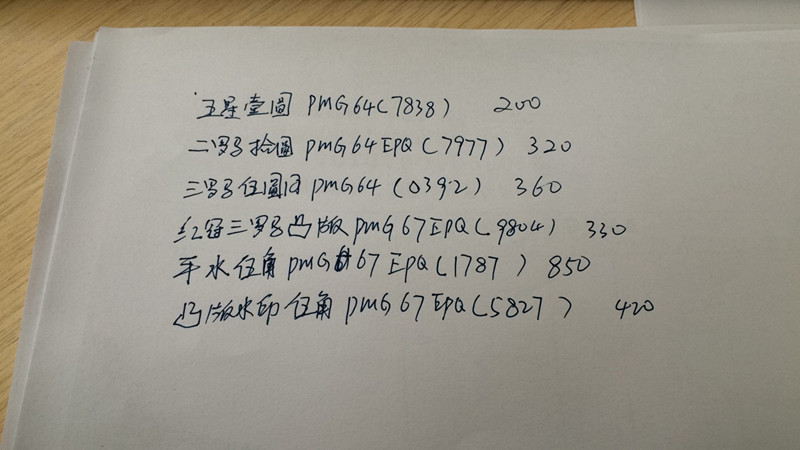 五星壹圆 PMG64(7838) 200
二罗马拾圆 PMG64EPQ(7977) 320
三罗马伍圆 PMG64(0392) 360
红冠三罗马凸版 PMG67EPQ(9804) 330
平水伍角 PMG 67EPQ(1787) 850
凸版水印伍角 PMG67EPQ(5827) 420